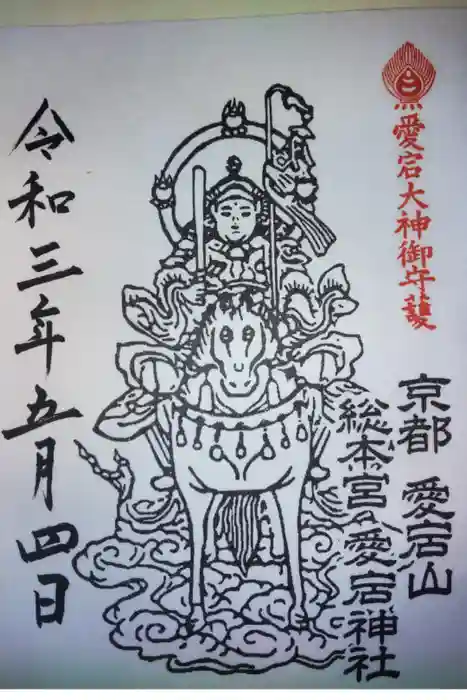 愛宕大神御守護
京都 愛宕山
総本宮 愛宕神社
令和三年五月四日